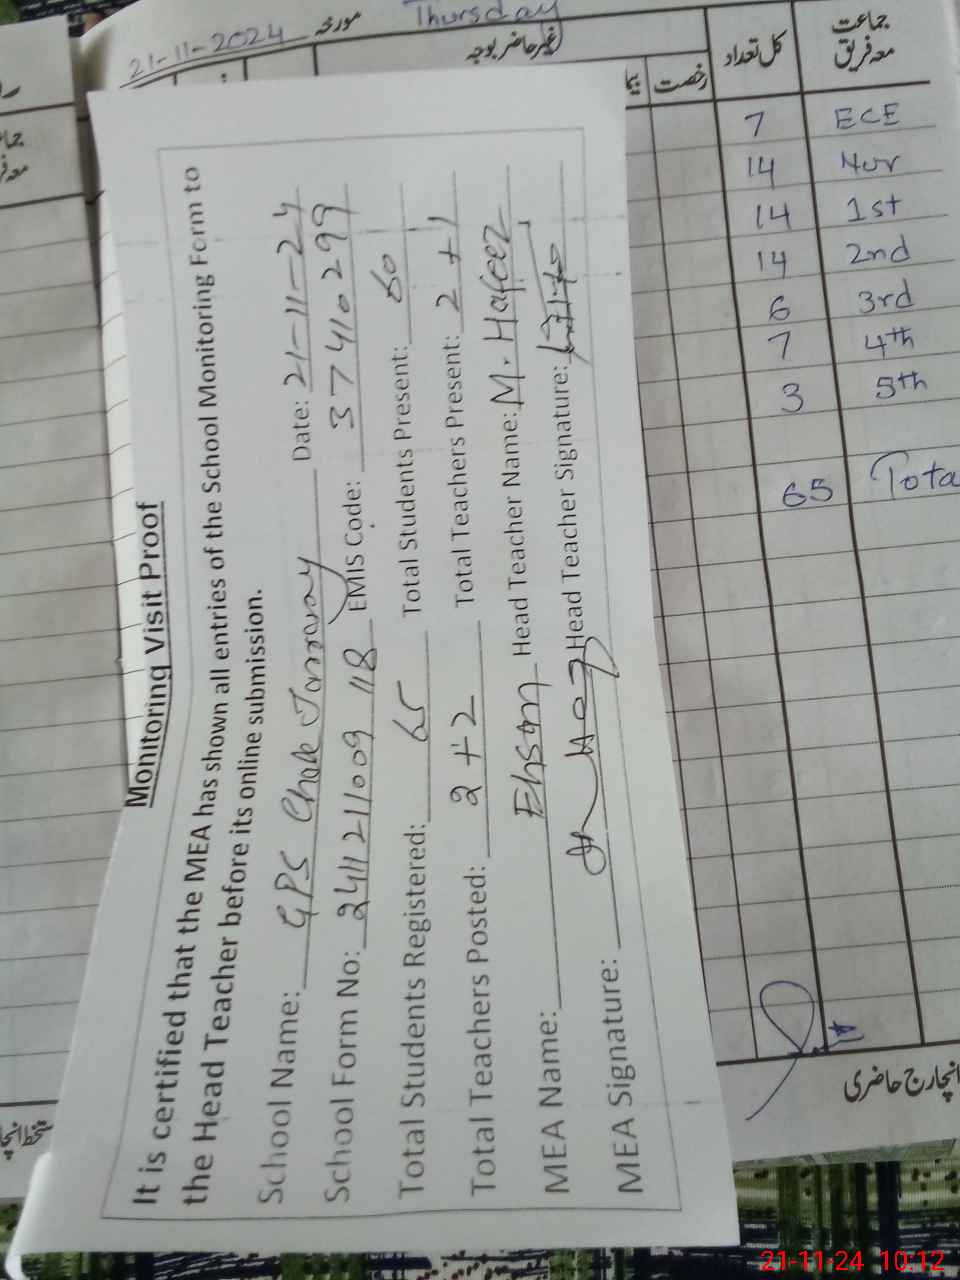 Monitoring Visit Proof
It is certified that the MEA has shown all entries of the School Monitoring Form to
the Head Teacher before its online submission.
School Name: GPS Chak Date: 21-11-24
School Form No: 2411211009 118 EMIS Code: 37410299
Total Students Registered: 65 Total Students Present: 60
Total Teachers Posted: 2+2 Total Teachers Present: 2+1
MEA Name: Ehsan Head Teacher Name: M. Hafeez
MEA Signature: Head Teacher Signature:
21-11-2024 مورخہ Thursday
غیر حاضر بوجہ کل تعداد جماعت معہ فریق
رخصت
7 ECE
14 Nur
14 1st
14 2nd
6 3rd
7 4th
3 5th
65 Tota
انچارج حاضری
21-11-24 10:12